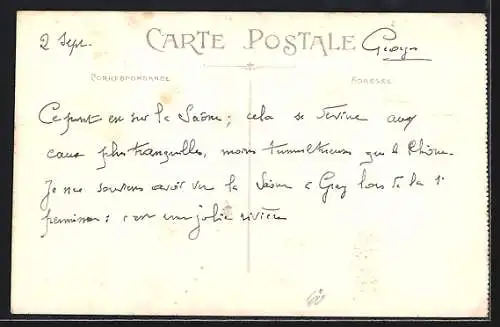 2 Sept.
CARTE POSTALE
Georges
CORRESPONDANCE
ADRESSE
Ce pont est sur la Saône ; cela se devine aux
eaux plus tranquilles, moins tumultueuses que le Rhône.
Je me souviens avoir vu la Saône à Gray lors de la 1e
permission : c'est une jolie rivière